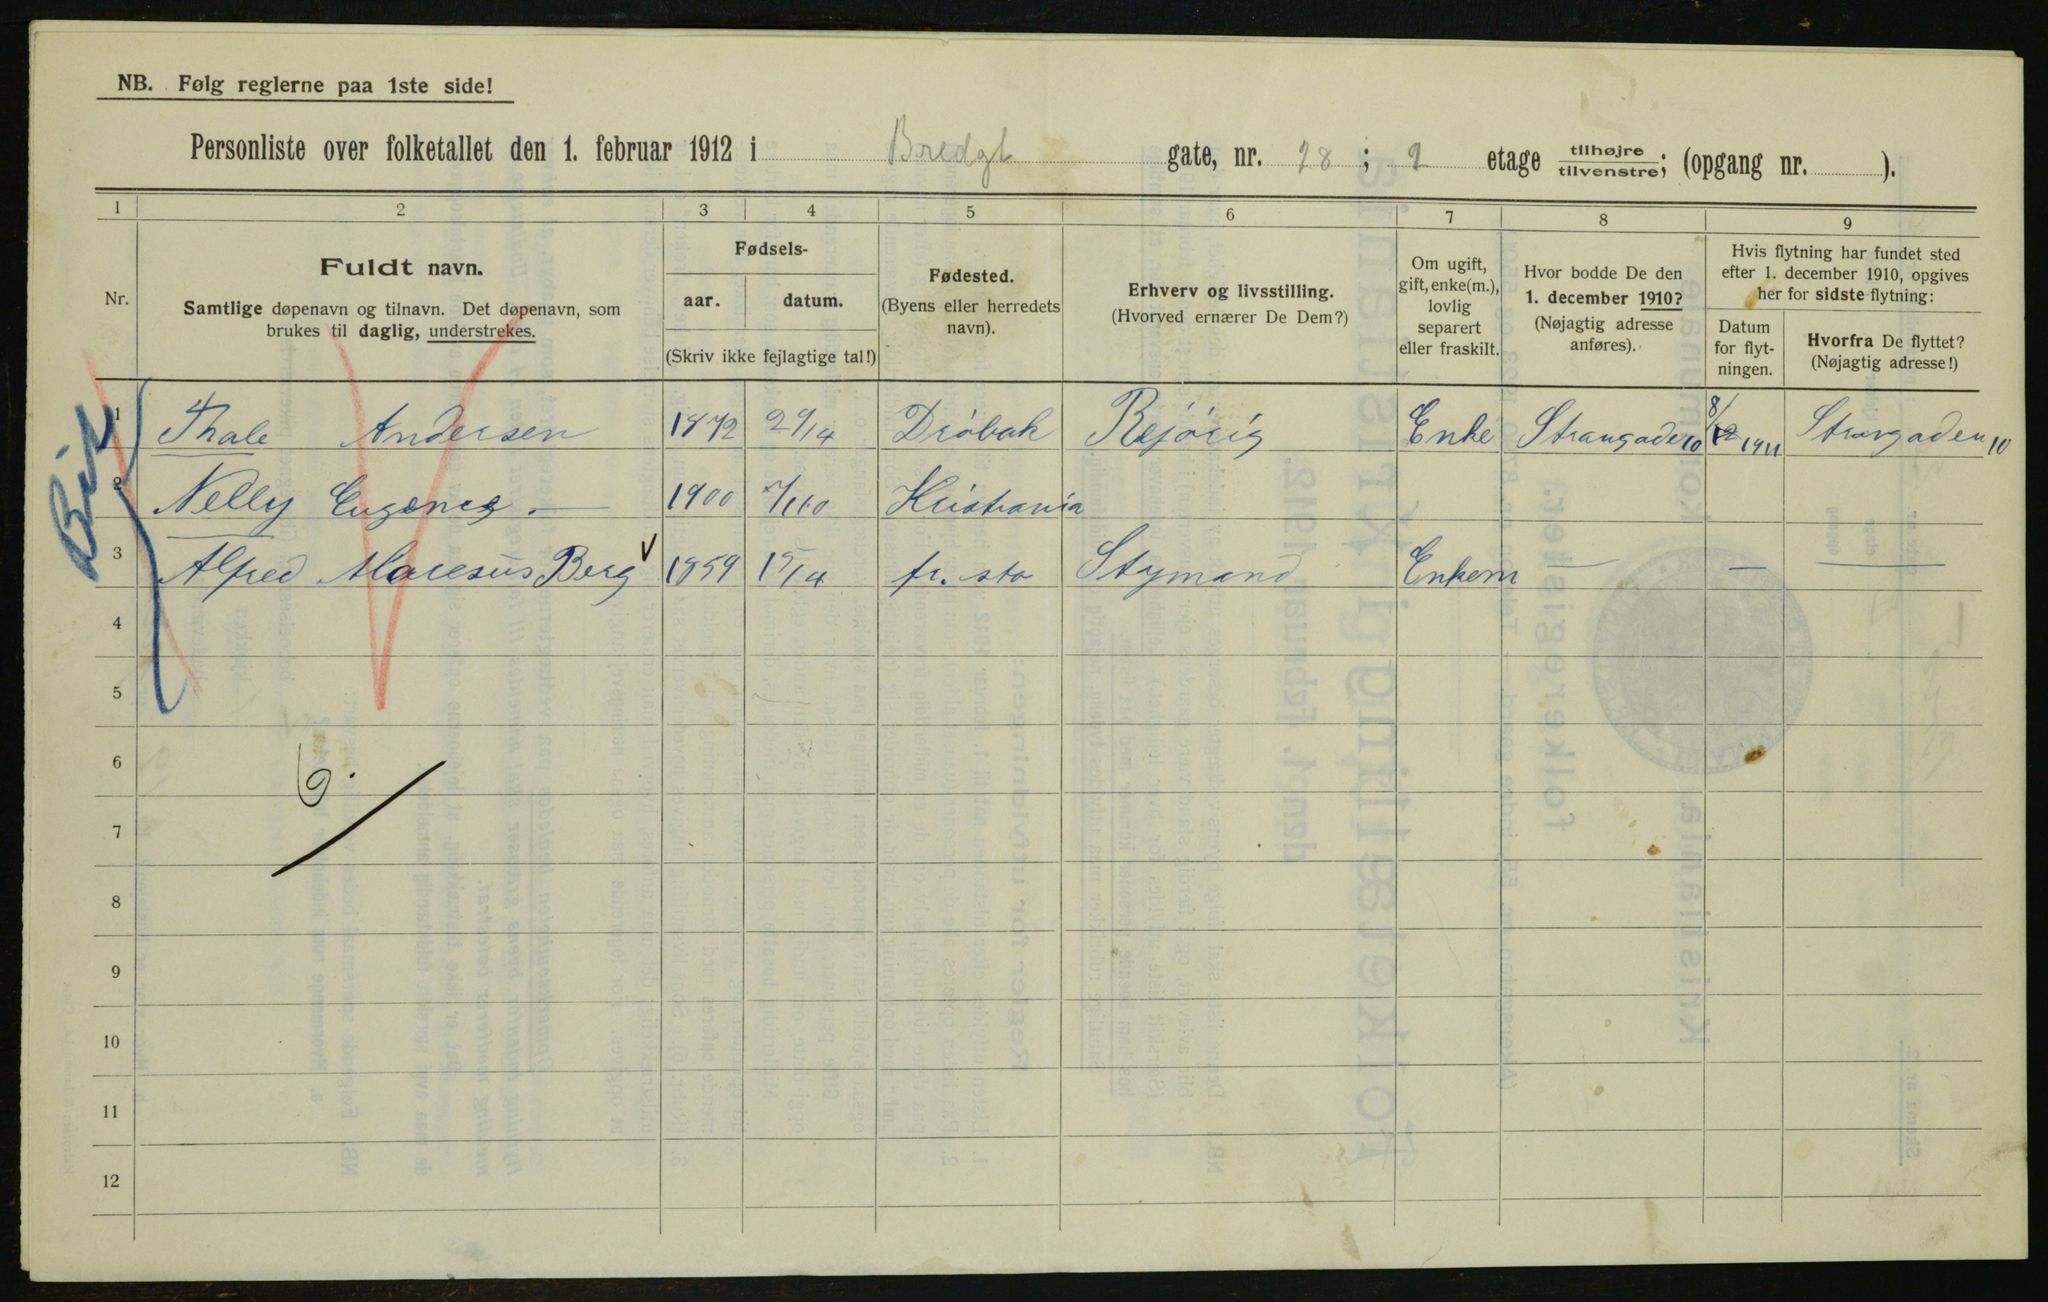 NB. Følg reglerne paa 1ste side!
Personliste over folketallet den 1. februar 1912 i Bredgt gate, nr. 28 ; 2 etage tilhøjre tilvenstre; (opgang nr. ).
1 2 3 4 5 6 7 8 9
Nr.
Fuldt navn.
Samtlige døpenavn og tilnavn. Det døpenavn, som
brukes til daglig, understrekes.
Fødsels-
aar. datum.
(Skriv ikke fejlagtige tal!)
Fødested.
(Byens eller herredets
navn).
Erhverv og livsstilling.
(Hvorved ernærer De Dem?)
Om ugift,
gift, enke(m.),
lovlig
separert
eller fraskilt.
Hvor bodde De den
1. december 1910?
(Nøjagtig adresse
anføres).
Hvis flytning har fundet sted
efter 1. december 1910, opgives
her for sidste flytning:
Datum
for flyt-
ningen.
Hvorfra De flyttet?
(Nøjagtig adresse!)
1 Thale Andersen 1872 29/14 Drøbak Rejørig Enke Strangaden 10 8/12 1911 Strangaden 10
2 Nelly Eugenes — 1900 7/10 Kristiania
3 Alfred Marcsus Berg V 1859 15/4 fr. sta Stymand Enkem — — —
4
5
6
6.
7
8
9
10
11
12